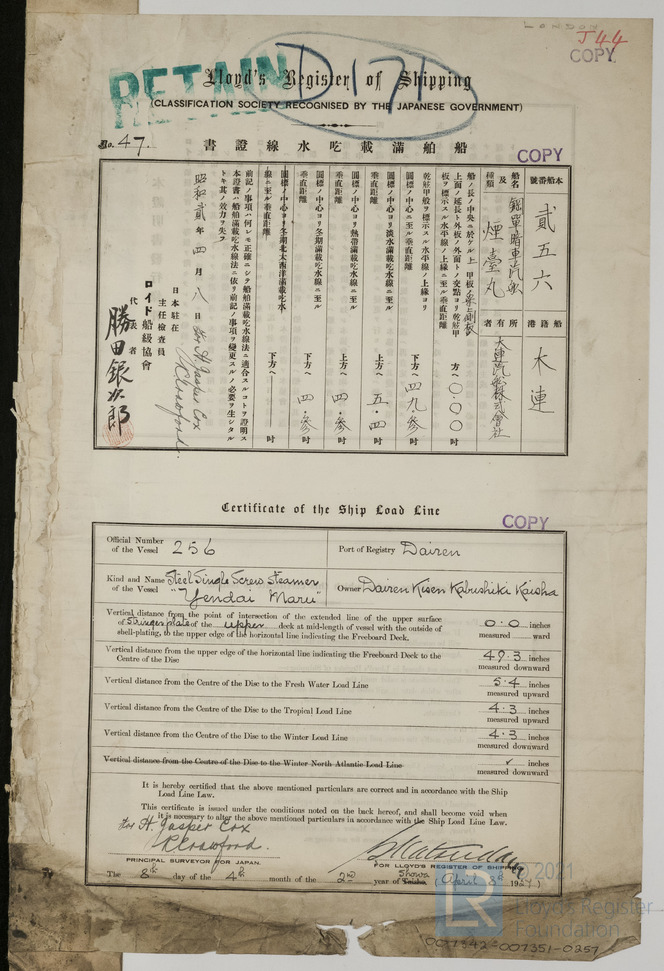 LONDON
J44
COPY
RETAIN
D171
Lloyd's Register of Shipping
(CLASSIFICATION SOCIETY RECOGNISED BY THE JAPANESE GOVERNMENT)
No. 47.
書證線水吃載滿舶船
COPY
本船番號
貳五六
船籍港
大連
船名及種類
鋼單暗車汽船
煙臺丸
所有者
大連汽船株式會社
船ノ長ノ中央ニ於ケル上甲板ノ梁上側板
上面ノ延長ト外板ノ外面トノ交點ヨリ乾舷甲
板ヲ標示スル水平線ノ上緣ニ至ル垂直距離
方ヘ 〇.〇〇 吋
乾舷甲板ヲ標示スル水平線ノ上緣ヨリ
圓標ノ中心ニ至ル垂直距離
下方ヘ 四九.參 吋
圓標ノ中心ヨリ淡水滿載吃水線ニ至ル
垂直距離
上方ヘ 五.四 吋
圓標ノ中心ヨリ熱帶滿載吃水線ニ至ル
垂直距離
上方ヘ 四.參 吋
圓標ノ中心ヨリ冬期滿載吃水線ニ至ル
垂直距離
下方ヘ 四.參 吋
圓標ノ中心ヨリ冬期北大西洋滿載吃水
線ニ至ル垂直距離
下方ヘ 吋
前記ノ事項ハ何レモ正確ニシテ船舶滿載吃水線法ニ適合スルコトヲ證明ス
本證書ハ船舶滿載吃水線法ニ依リ前記ノ事項ヲ變更スルノ必要ヲ生シタル
トキ其ノ效力ヲ失フ
昭和貳年四月八日
日本駐在
主任檢查員
for H. Jasper Cox
R Crawford.
ロイド船級協會
代表者
勝田銀次郎
Certificate of the Ship Load Line
COPY
Official Number of the Vessel 256
Port of Registry Dairen
Kind and Name of the Vessel Steel Single Screw Steamer
"Yendai Maru"
Owner Dairen Kisen Kabushiki Kaisha
Vertical distance from the point of intersection of the extended line of the upper surface
of Stringer plate of the upper deck at mid-length of vessel with the outside of
shell-plating, to the upper edge of the horizontal line indicating the Freeboard Deck.
0.0 inches
measured ward
Vertical distance from the upper edge of the horizontal line indicating the Freeboard Deck to the
Centre of the Disc
49.3 inches
measured downward
Vertical distance from the Centre of the Disc to the Fresh Water Load Line
5.4 inches
measured upward
Vertical distance from the Centre of the Disc to the Tropical Load Line
4.3 inches
measured upward
Vertical distance from the Centre of the Disc to the Winter Load Line
4.3 inches
measured downward
Vertical distance from the Centre of the Disc to the Winter North Atlantic Load Line
✓ inches
measured downward
It is hereby certified that the above mentioned particulars are correct and in accordance with the Ship
Load Line Law.
This certificate is issued under the conditions noted on the back hereof, and shall become void when
it is necessary to alter the above mentioned particulars in accordance with the Ship Load Line Law.
for H. Jasper Cox
R Crawford.
PRINCIPAL SURVEYOR FOR JAPAN.
FOR LLOYD'S REGISTER OF SHIPPING
The 8th day of the 4th month of the 2nd year of Showa Taisho. (April 8th 1927)
© 2021
LR
Lloyd's Register
Foundation
007342-007351-0257